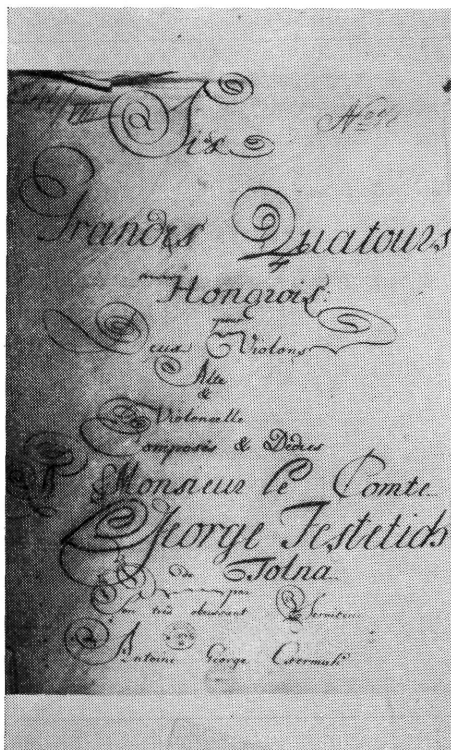 Six
Grandes Quatours
Hongrois
pour
Deux Violons
Alte
&
Violoncelle
Composés & Dédies
A Monsieur le Comte
George Festetich
de Tolna
par
Son très obeissant Serviteur
Antoine George Csermak